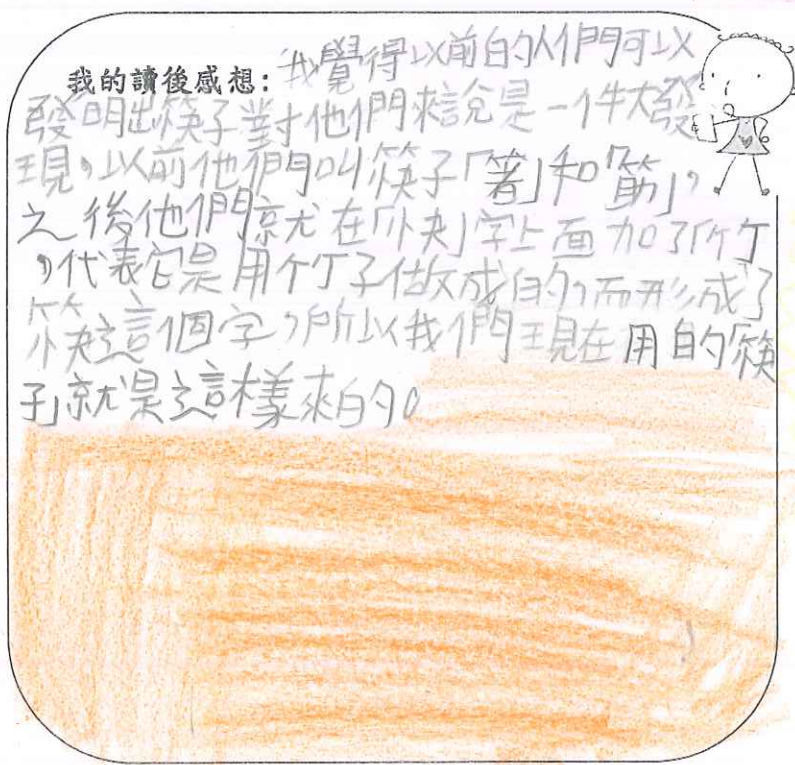 我的讀後感想：我覺得以前的人們可以
發明出筷子對他們來說是一件大發
現，以前他們叫筷子「箸」和「筯」，
之後他們就在「快」字上面加了「竹
，代表它是用竹子做成的，而形成了
筷這個字，所以我們現在用的「筷
子」就是這樣來的。